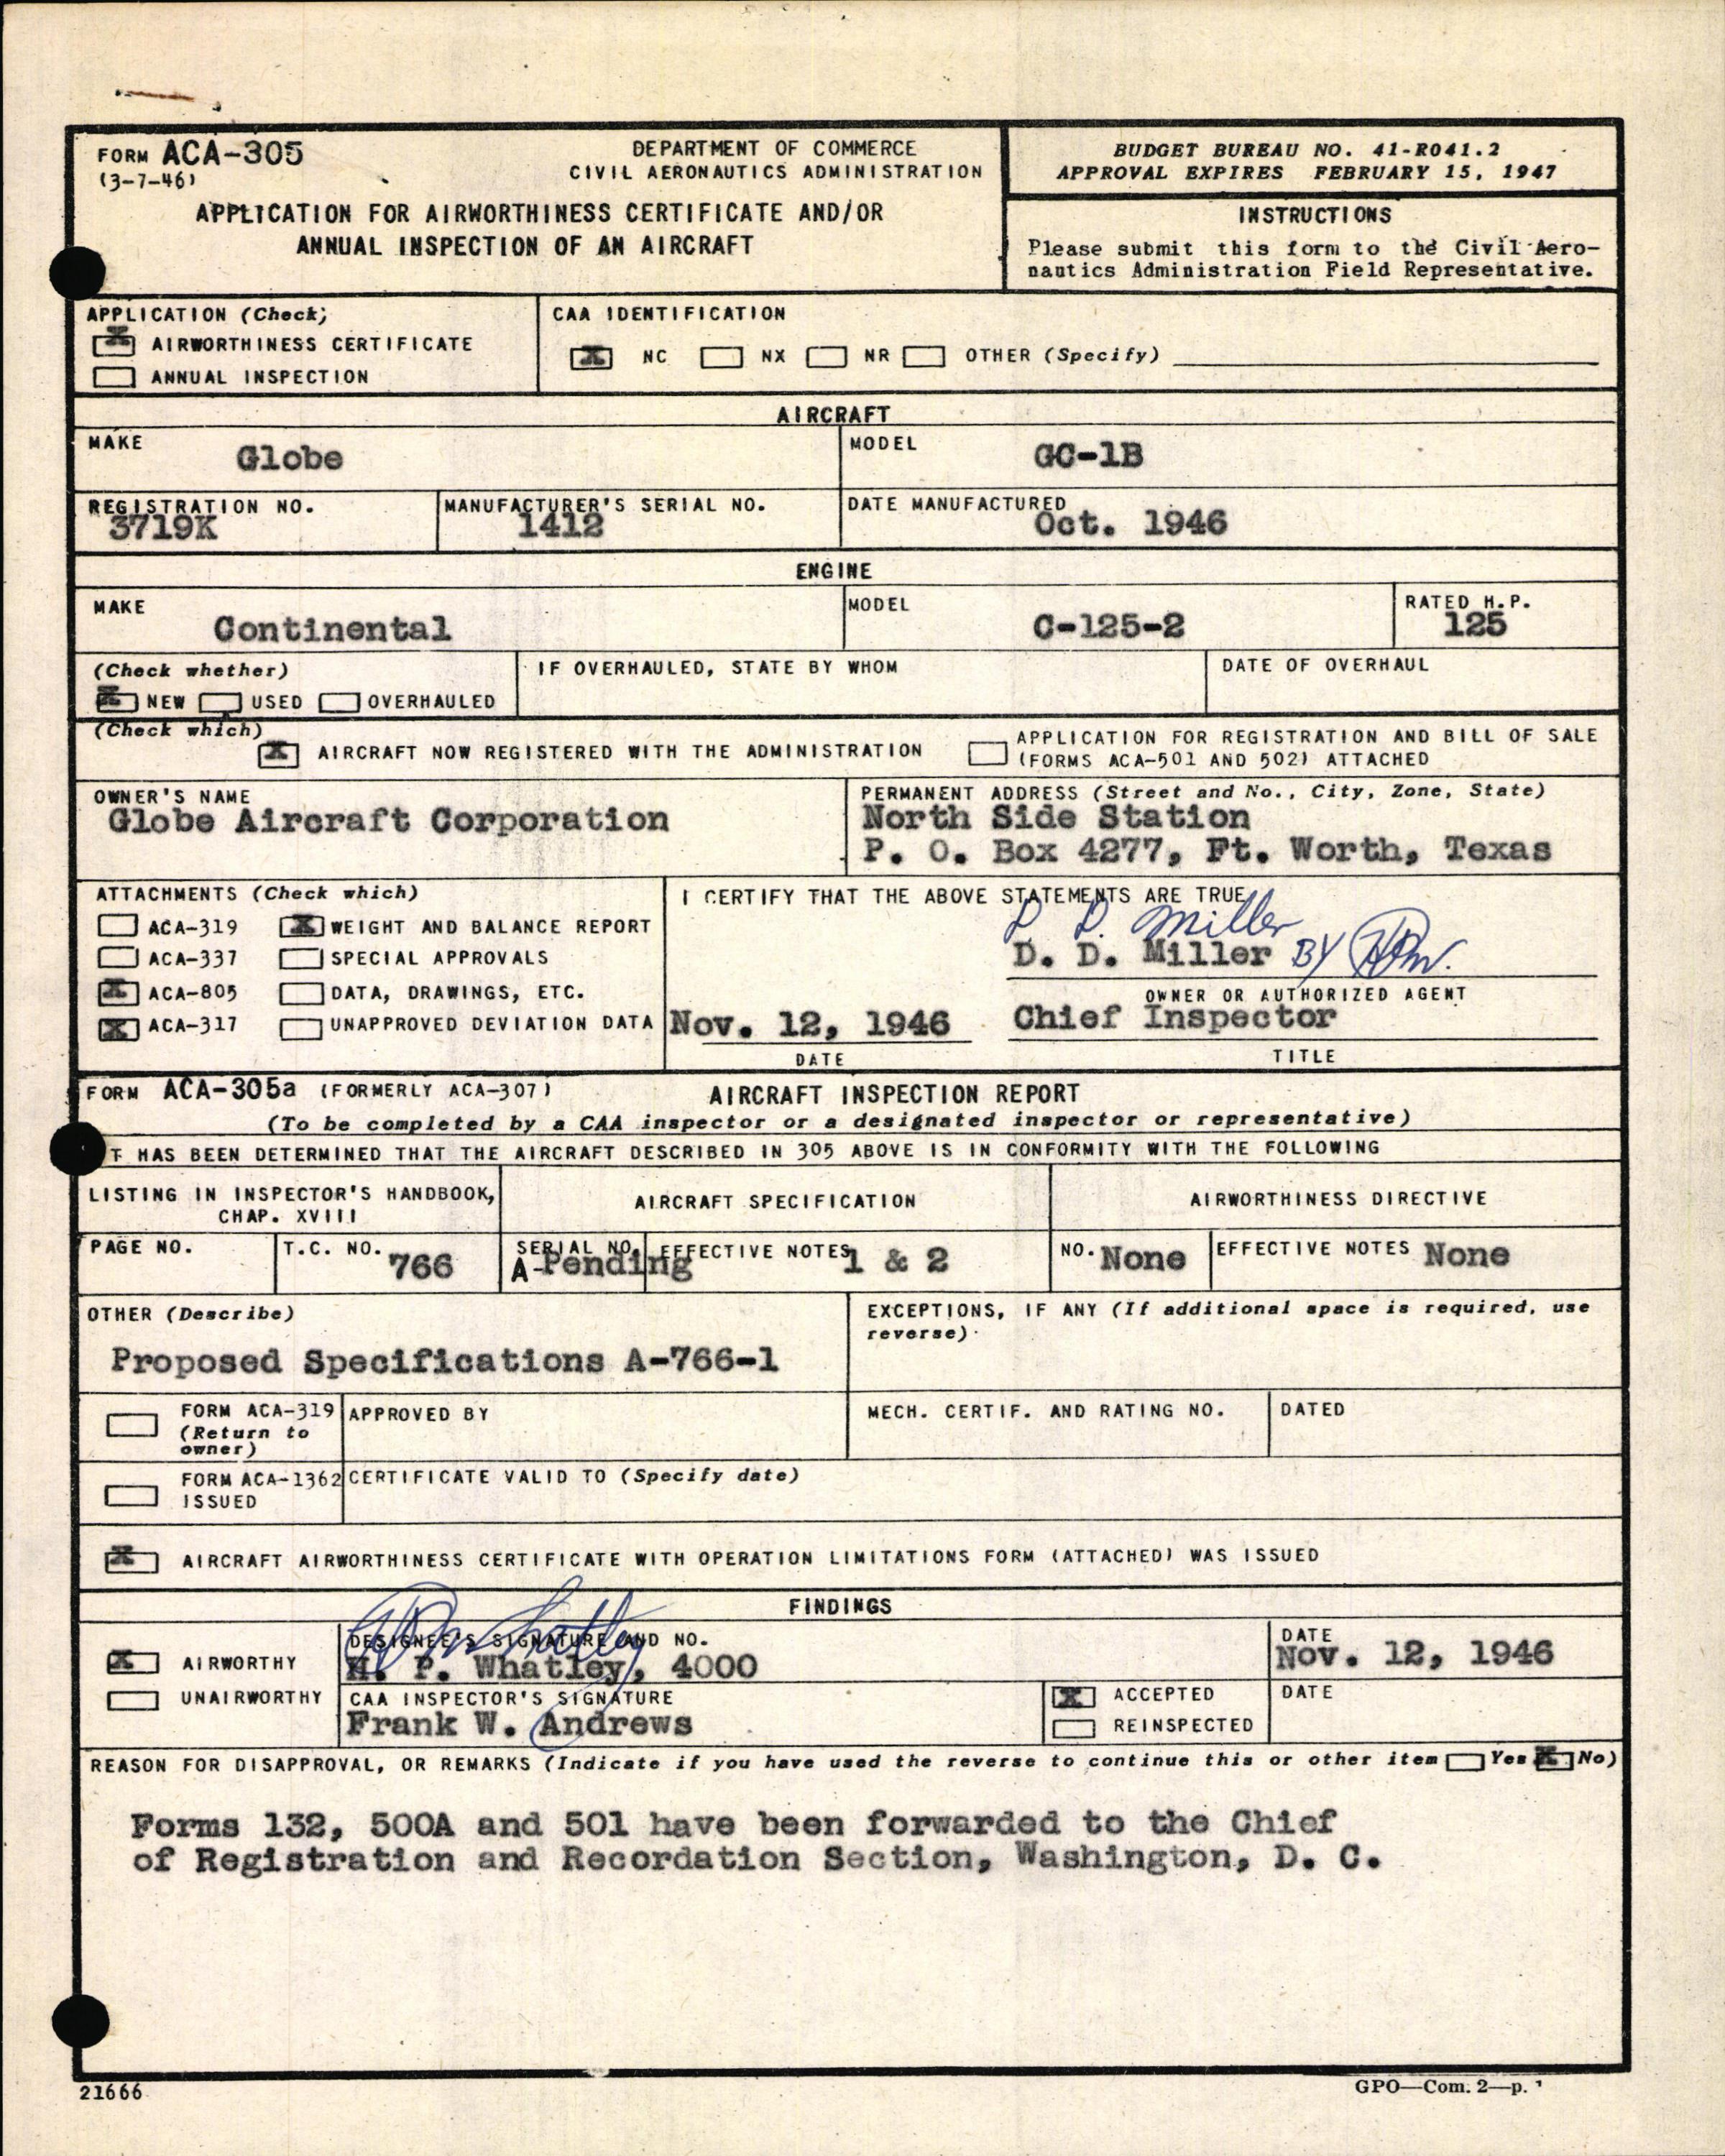 FORM ACA-305
(3-7-46)
DEPARTMENT OF COMMERCE
CIVIL AERONAUTICS ADMINISTRATION
APPLICATION FOR AIRWORTHINESS CERTIFICATE AND/OR
ANNUAL INSPECTION OF AN AIRCRAFT
BUDGET BUREAU NO. 41-R041.2
APPROVAL EXPIRES FEBRUARY 15, 1947
INSTRUCTIONS
Please submit this form to the Civil Aero-
nautics Administration Field Representative.
APPLICATION (Check)
X AIRWORTHINESS CERTIFICATE
ANNUAL INSPECTION
CAA IDENTIFICATION
X NC NX NR OTHER (Specify)
AIRCRAFT
MAKE
Globe
MODEL
GC-1B
REGISTRATION NO.
3719K
MANUFACTURER'S SERIAL NO.
1412
DATE MANUFACTURED
Oct. 1946
ENGINE
MAKE
Continental
MODEL
C-125-2
RATED H.P.
125
(Check whether)
X NEW USED OVERHAULED
IF OVERHAULED, STATE BY WHOM
DATE OF OVERHAUL
(Check which)
X AIRCRAFT NOW REGISTERED WITH THE ADMINISTRATION
APPLICATION FOR REGISTRATION AND BILL OF SALE
(FORMS ACA-501 AND 502) ATTACHED
OWNER'S NAME
Globe Aircraft Corporation
PERMANENT ADDRESS (Street and No., City, Zone, State)
North Side Station
P. O. Box 4277, Ft. Worth, Texas
ATTACHMENTS (Check which)
ACA-319 X WEIGHT AND BALANCE REPORT
ACA-337 SPECIAL APPROVALS
X ACA-805 DATA, DRAWINGS, ETC.
X ACA-317 UNAPPROVED DEVIATION DATA
I CERTIFY THAT THE ABOVE STATEMENTS ARE TRUE
D. D. Miller
D. D. Miller BY
OWNER OR AUTHORIZED AGENT
Nov. 12, 1946
DATE
Chief Inspector
TITLE
FORM ACA-305a (FORMERLY ACA-307) AIRCRAFT INSPECTION REPORT
(To be completed by a CAA inspector or a designated inspector or representative)
T HAS BEEN DETERMINED THAT THE AIRCRAFT DESCRIBED IN 305 ABOVE IS IN CONFORMITY WITH THE FOLLOWING
LISTING IN INSPECTOR'S HANDBOOK,
CHAP. XVIII
AIRCRAFT SPECIFICATION
AIRWORTHINESS DIRECTIVE
PAGE NO.
T.C. NO. 766
SERIAL NO.
A-Pending
EFFECTIVE NOTES 1 & 2
NO. None
EFFECTIVE NOTES None
OTHER (Describe)
Proposed Specifications A-766-1
EXCEPTIONS, IF ANY (If additional space is required, use
reverse)
FORM ACA-319
(Return to
owner)
APPROVED BY
MECH. CERTIF. AND RATING NO.
DATED
FORM ACA-1362
ISSUED
CERTIFICATE VALID TO (Specify date)
X AIRCRAFT AIRWORTHINESS CERTIFICATE WITH OPERATION LIMITATIONS FORM (ATTACHED) WAS ISSUED
FINDINGS
X AIRWORTHY
UNAIRWORTHY
DESIGNEE'S SIGNATURE AND NO.
H. P. Whatley, 4000
DATE
Nov. 12, 1946
CAA INSPECTOR'S SIGNATURE
Frank W. Andrews
X ACCEPTED
REINSPECTED
DATE
REASON FOR DISAPPROVAL, OR REMARKS (Indicate if you have used the reverse to continue this or other item Yes X No)
Forms 132, 500A and 501 have been forwarded to the Chief
of Registration and Recordation Section, Washington, D. C.
21666
GPO—Com. 2—p.